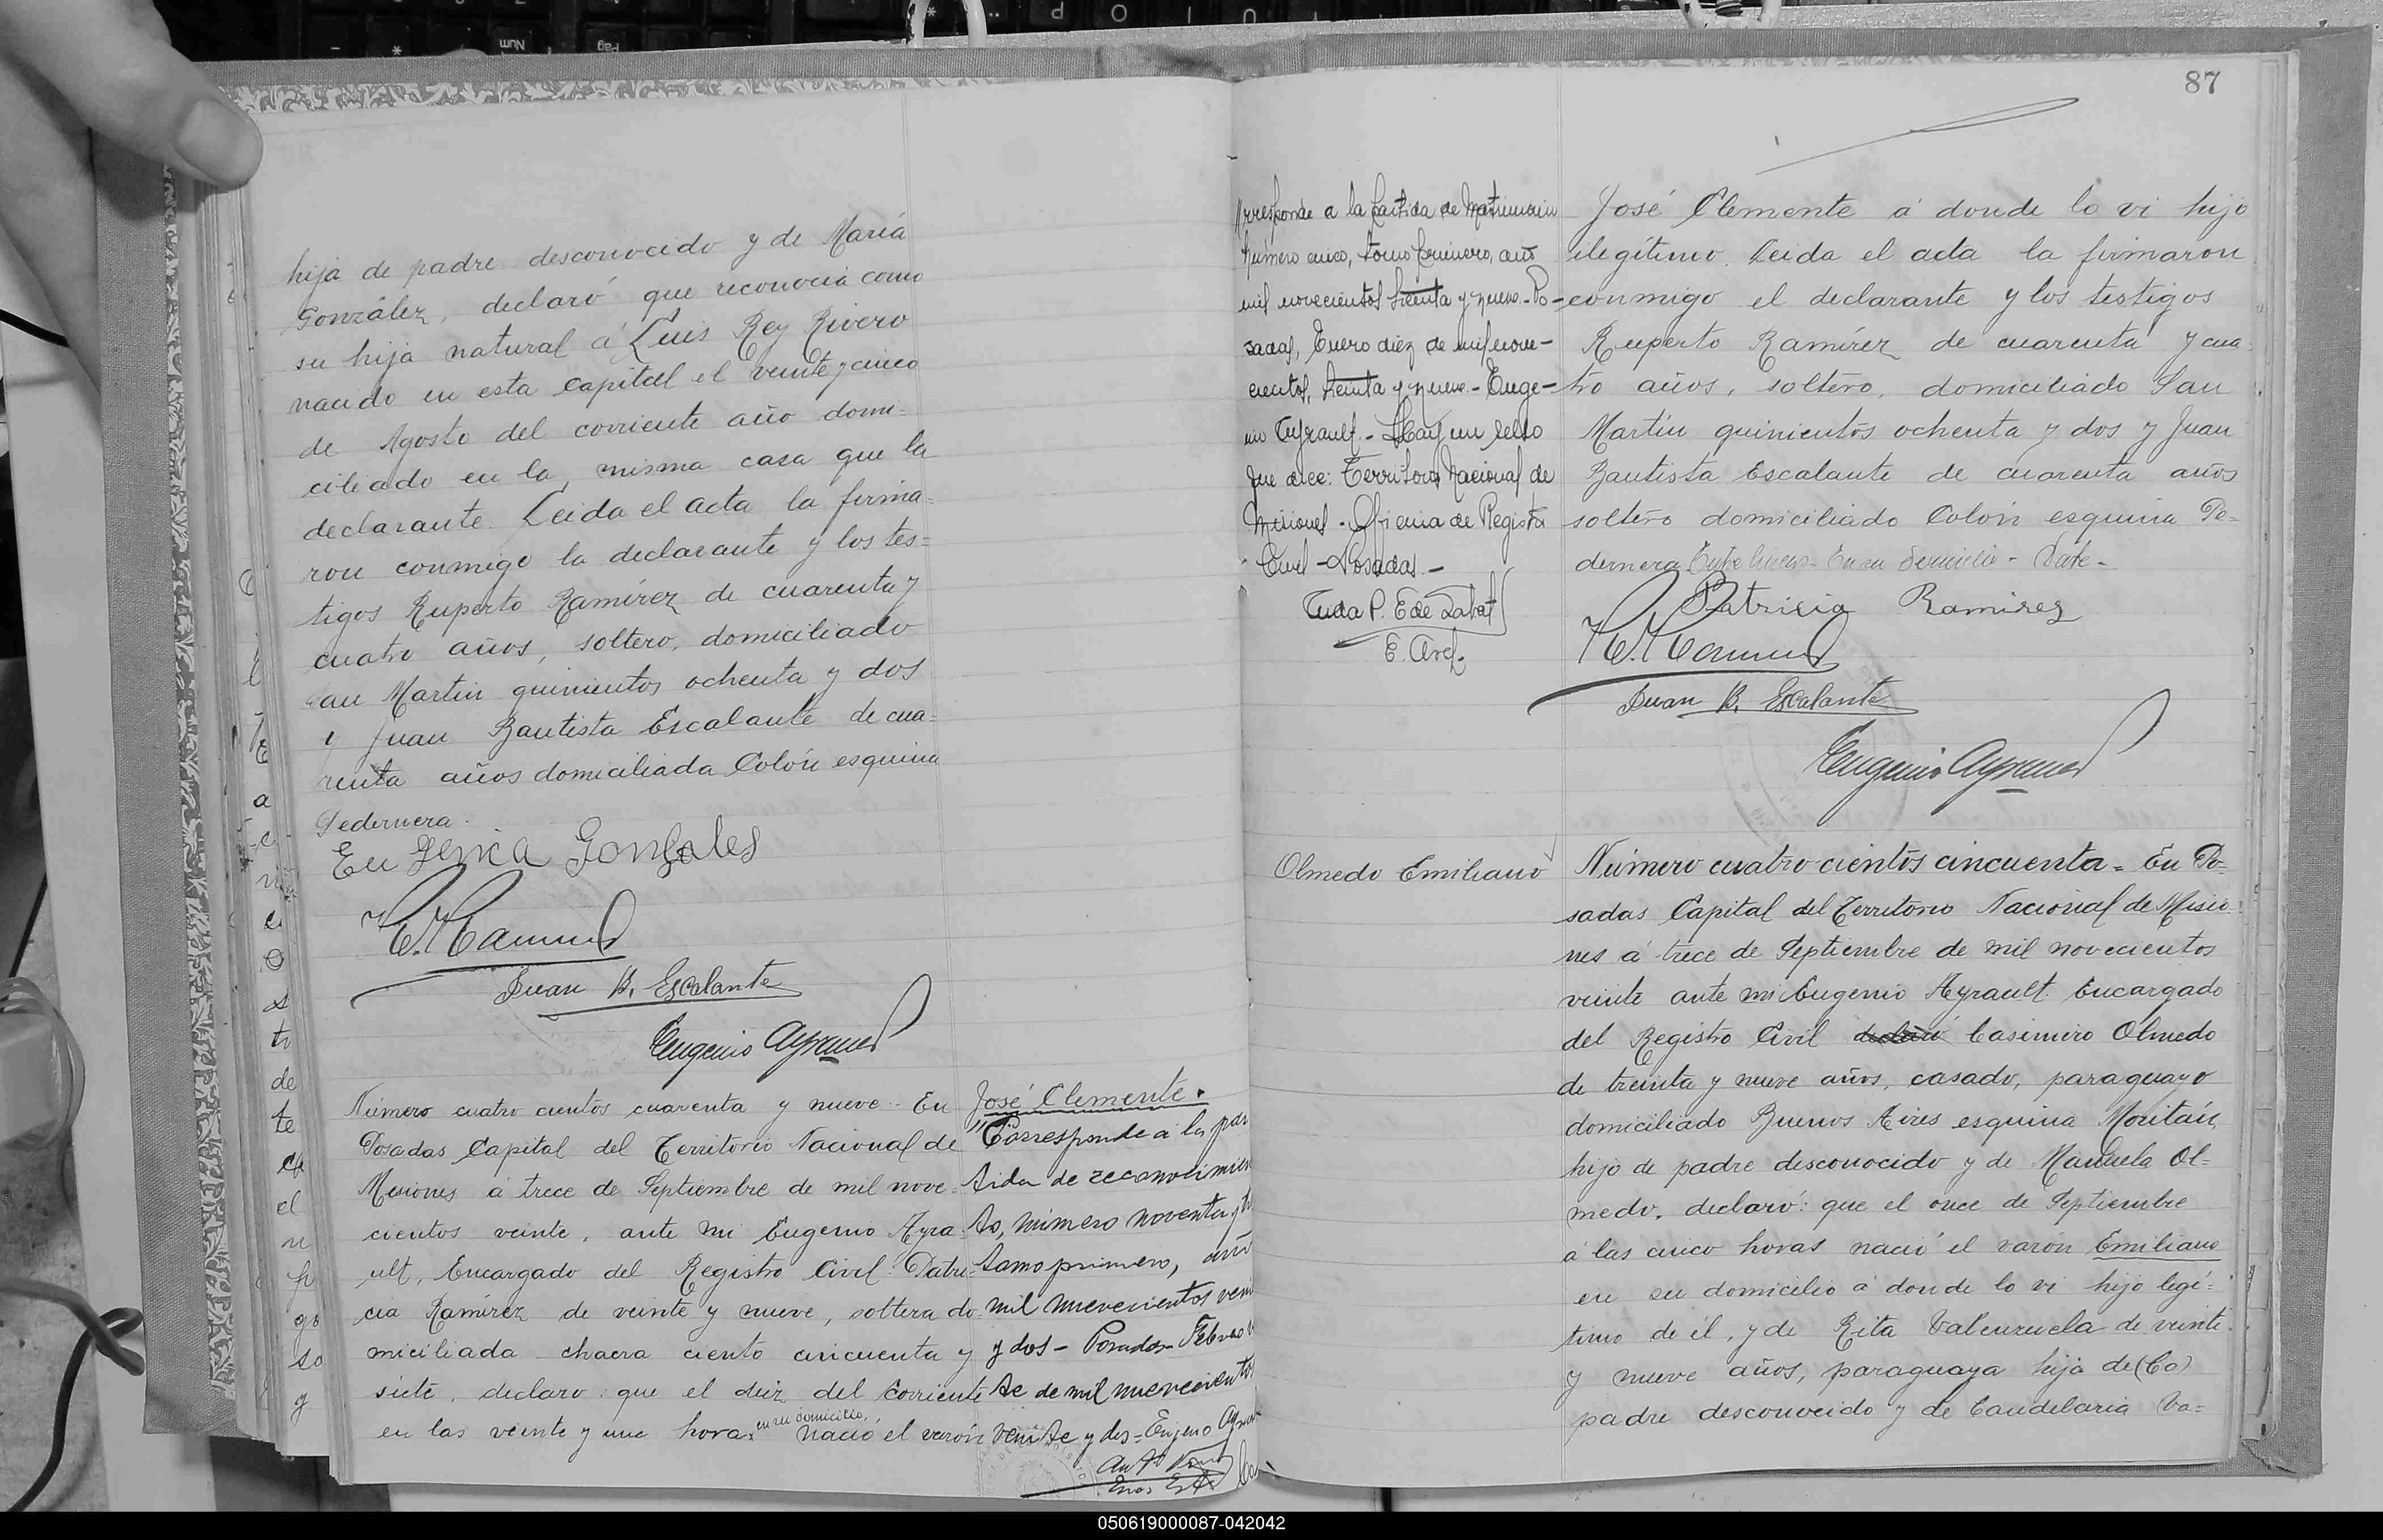 hija de padre desconocido y de María
González, declaró que reconocia como
su hija natural á Luis Rey Rivero
nacido en esta Capital el veinte y cinco
de Agosto del corriente año domi=
ciliado en la, misma casa que la
declarante. Leida el acta la firma=
ron conmigo la declarante y los tes=
tigos Ruperto Ramírez de cuarenta y
cuatro años, soltero, domiciliado
San Martin quinientos ochenta y dos
y Juan Bautista Escalante de cua=
renta años domiciliada Colón esquina
Pedernera.
Gonzales
Juan B. Escalante
Eugenio Ayrault
Número cuatro cientos cuarenta y nueve. En
Posadas Capital del Territorio Nacional de
Misiones á trece de Septiembre de mil nove=
cientos veinte, ante mi Eugenio Ayra
ult, Encargado del Registro Civil: Patri=
cia Ramírez de veinte y nueve, soltera do
miciliada chacra ciento cincuenta y
siete, declaro: que el diez del corriente
en las veinte y una hora, en su domicilio, nació el varón
José Clemente.
"Corresponde a la par
tida de reconocimien
to, número noventa y
tomo primero, año
mil nuevecientos vein
y dos - Posadas - Febrero
de mil nuevecientos
veinte y dos = Eugenio Ayrault
87
Corresponde a la partida de Matrimonio
Número cinco, tomo primero, año
mil novecientos treinta y nueve. - Po-
sadas, Enero diez de mil nove-
cientos, treinta y nueve. - Euge-
nio Ayrault. - Hay un sello
que dice: Territorio Nacional de
Misiones - Oficina de Registro
Civil - Posadas. -
José Clemente á donde lo vi hijo
ilegítimo. Leida el acta la firmaron
conmigo el declarante y los testigos
Ruperto Ramírez de cuarenta y cua
tro años, soltero, domiciliado San
Martín quinientos ochenta y dos y Juan
Bautista Escalante de cuarenta años
soltero domiciliado Colón esquina Pe-
dernera Entre líneas - En su domicilio - Vale -
Patricia Ramirez
Juan B. Escalante
Eugenio Ayrault
Olmedo Emiliano
Número cuatro cientos cincuenta = En Po-
sadas Capital del Territorio Nacional de Misio=
nes á trece de Septiembre de mil novecientos
veinte ante mi Eugenio Ayrault. Encargado
del Registro Civil declaró Casimiro Olmedo
de treinta y nueve años, casado, paraguayo
domiciliado Buenos Aires esquina
hijo de padre desconocido y de Manuela Ol=
medo, declaró: que el once de Septiembre
á las cinco horas nació el varón Emiliano
en su domicilio á donde lo vi hijo legí=
timo de él, y de Rita Valenzuela de veinte
y nueve años, paraguaya hija de (Co)
padre desconocido y de Candelaria Va=
050619000087-042042